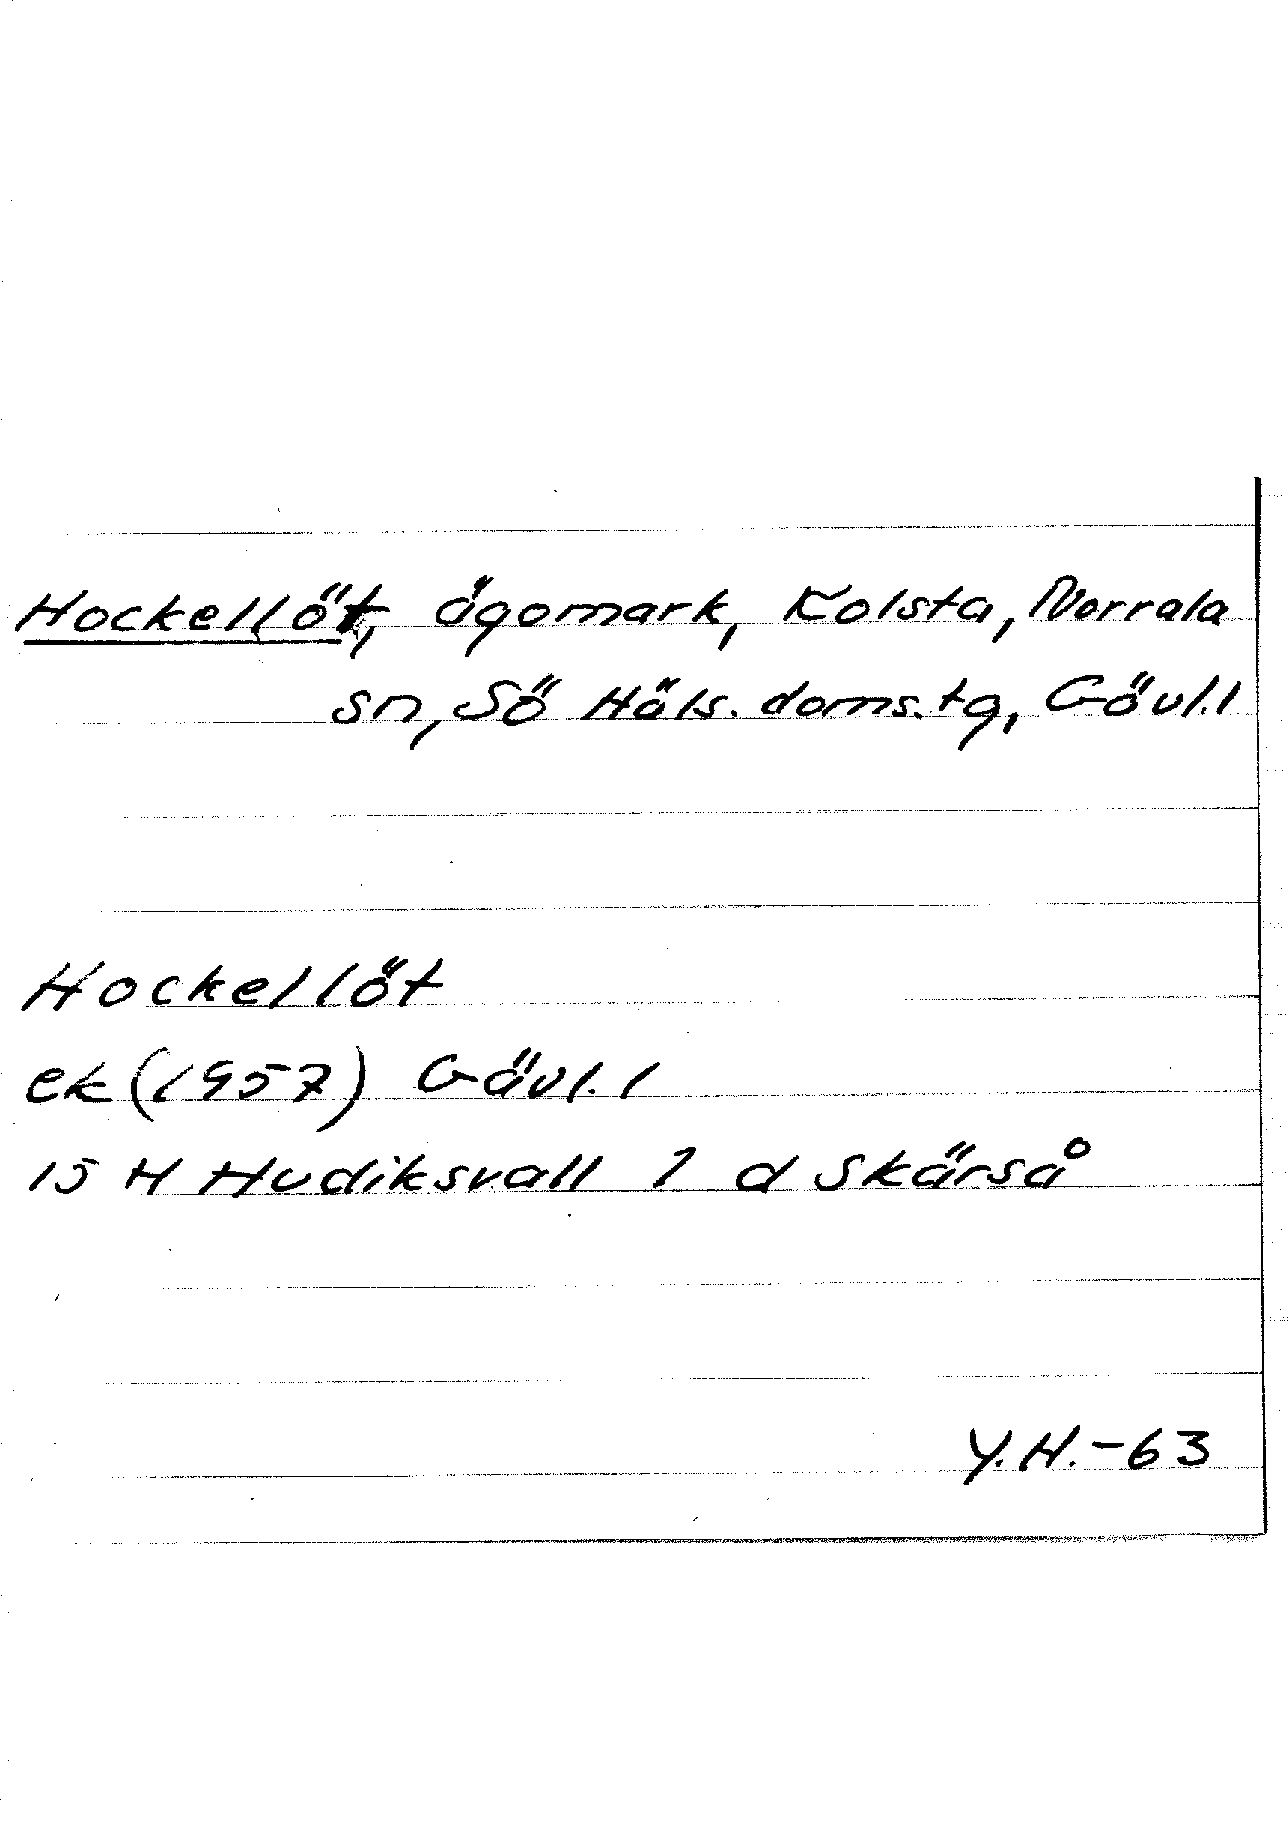 Hockellöt, ägomark, Kolsta, Norrala
sn, Sö Häls. doms.tg, Gävl.l
Hockellöt
ek (1957) Gävl. l
15 H Hudiksvall 1 d Skärså
Y.H.-63